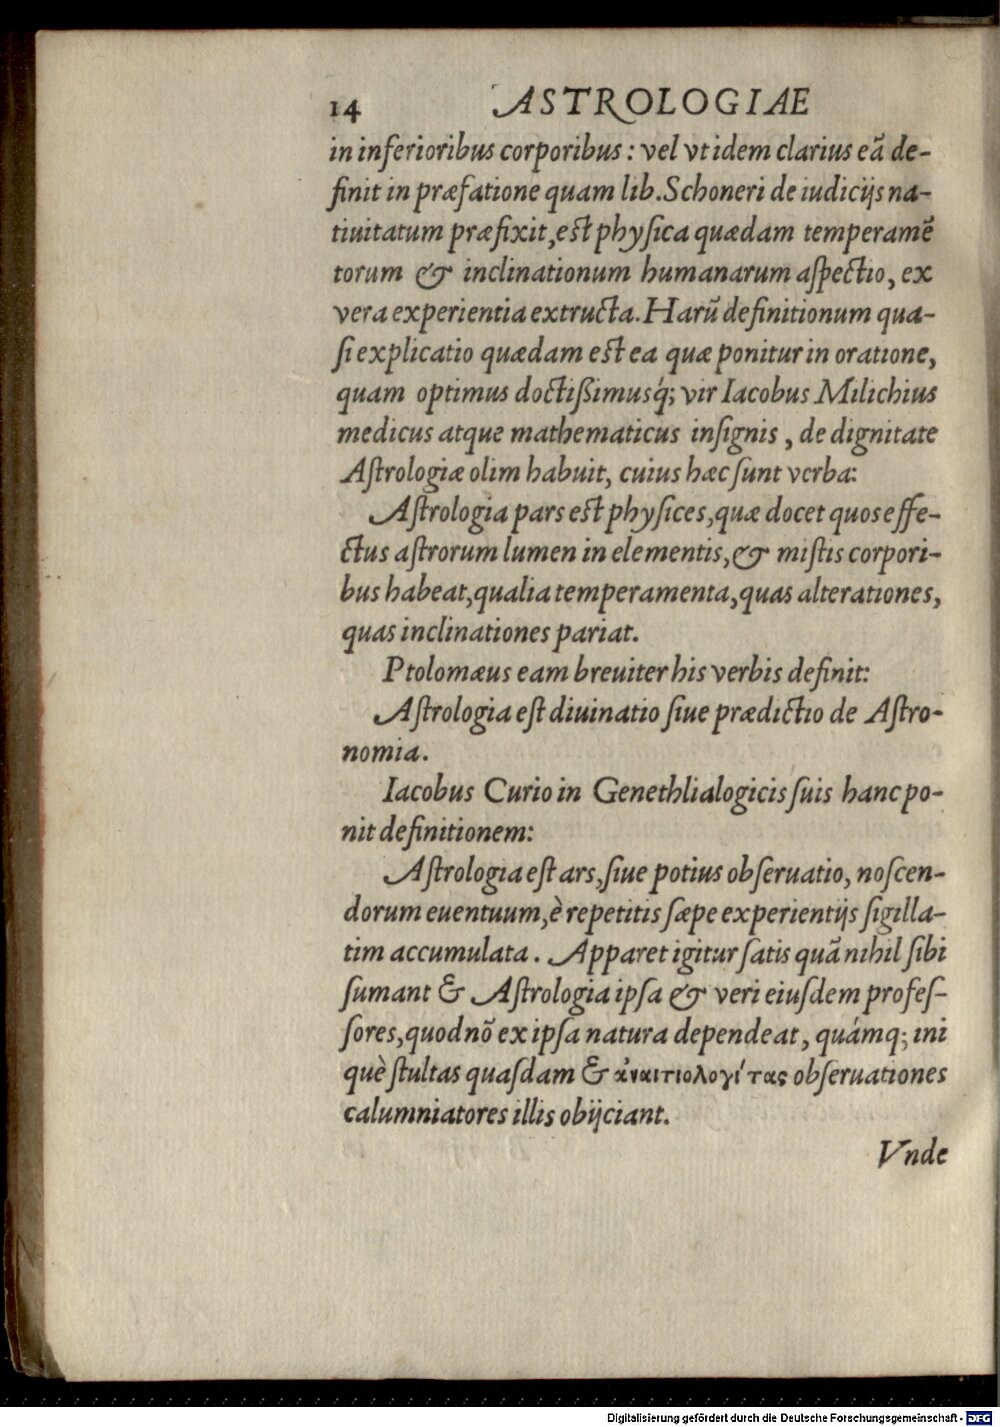 14 ASTROLOGIAE
in inferioribus corporibus: vel vt idem clarius eã de-
finit in præfatione quam lib. Schoneri de iudicijs na-
tiuitatum præfixit, est physica quædam temperamẽ
torum & inclinationum humanarum aspectio, ex
vera experientia extructa. Harũ definitionum qua-
si explicatio quædam est ea quæ ponitur in oratione,
quam optimus doctißimusq́; vir Iacobus Milichius
medicus atque mathematicus insignis, de dignitate
Astrologiæ olim habuit, cuius hæc sunt verba:
Astrologia pars est physices, quæ docet quos effe-
ctus astrorum lumen in elementis, & mistis corpori-
bus habeat, qualia temperamenta, quas alterationes,
quas inclinationes pariat.
Ptolomæus eam breuiter his verbis definit:
Astrologia est diuinatio siue prædictio de Astro-
nomia.
Iacobus Curio in Genethlialogicis suis hanc po-
nit definitionem:
Astrologia est ars, siue potius obseruatio, noscen-
dorum euentuum, è repetitis sæpe experientijs sigilla-
tim accumulata. Apparet igitur satis quã nihil sibi
sumant & Astrologia ipsa & veri eiusdem profes-
sores, quod nõ ex ipsa natura dependeat, quámq; ini
què stultas quasdam & ἀναιτιολογίτας obseruationes
calumniatores illis obijciant.
Vnde
Digitalisierung gefördert durch die Deutsche Forschungsgemeinschaft - DFG